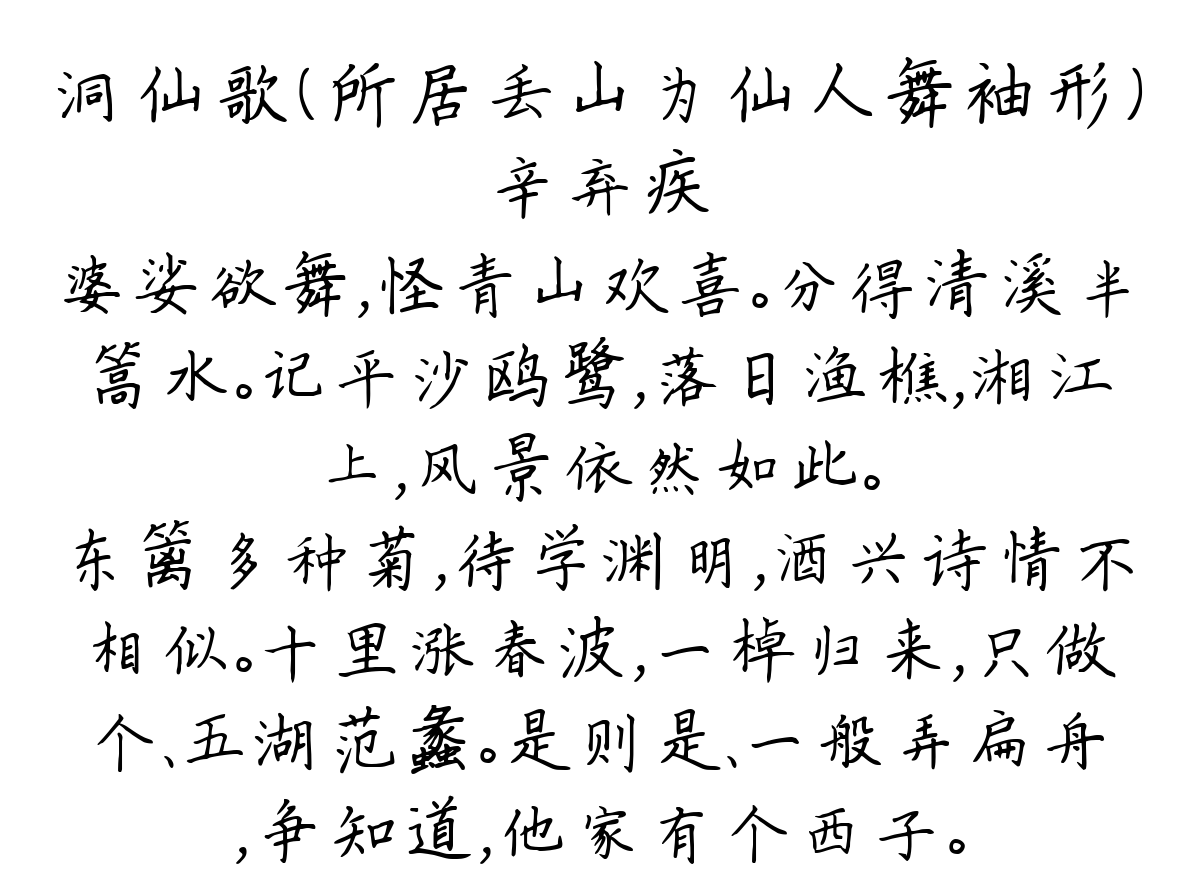 洞仙歌(所居丢山为仙人舞袖形)
辛弃疾
婆娑欲舞,怪青山欢喜。分得清溪半
篙水。记平沙鸥鹭,落日渔樵,湘江
上,风景依然如此。
东篱多种菊,待学渊明,酒兴诗情不
相似。十里涨春波,一棹归来,只做
个、五湖范蠡。是则是、一般弄扁舟
,争知道,他家有个西子。